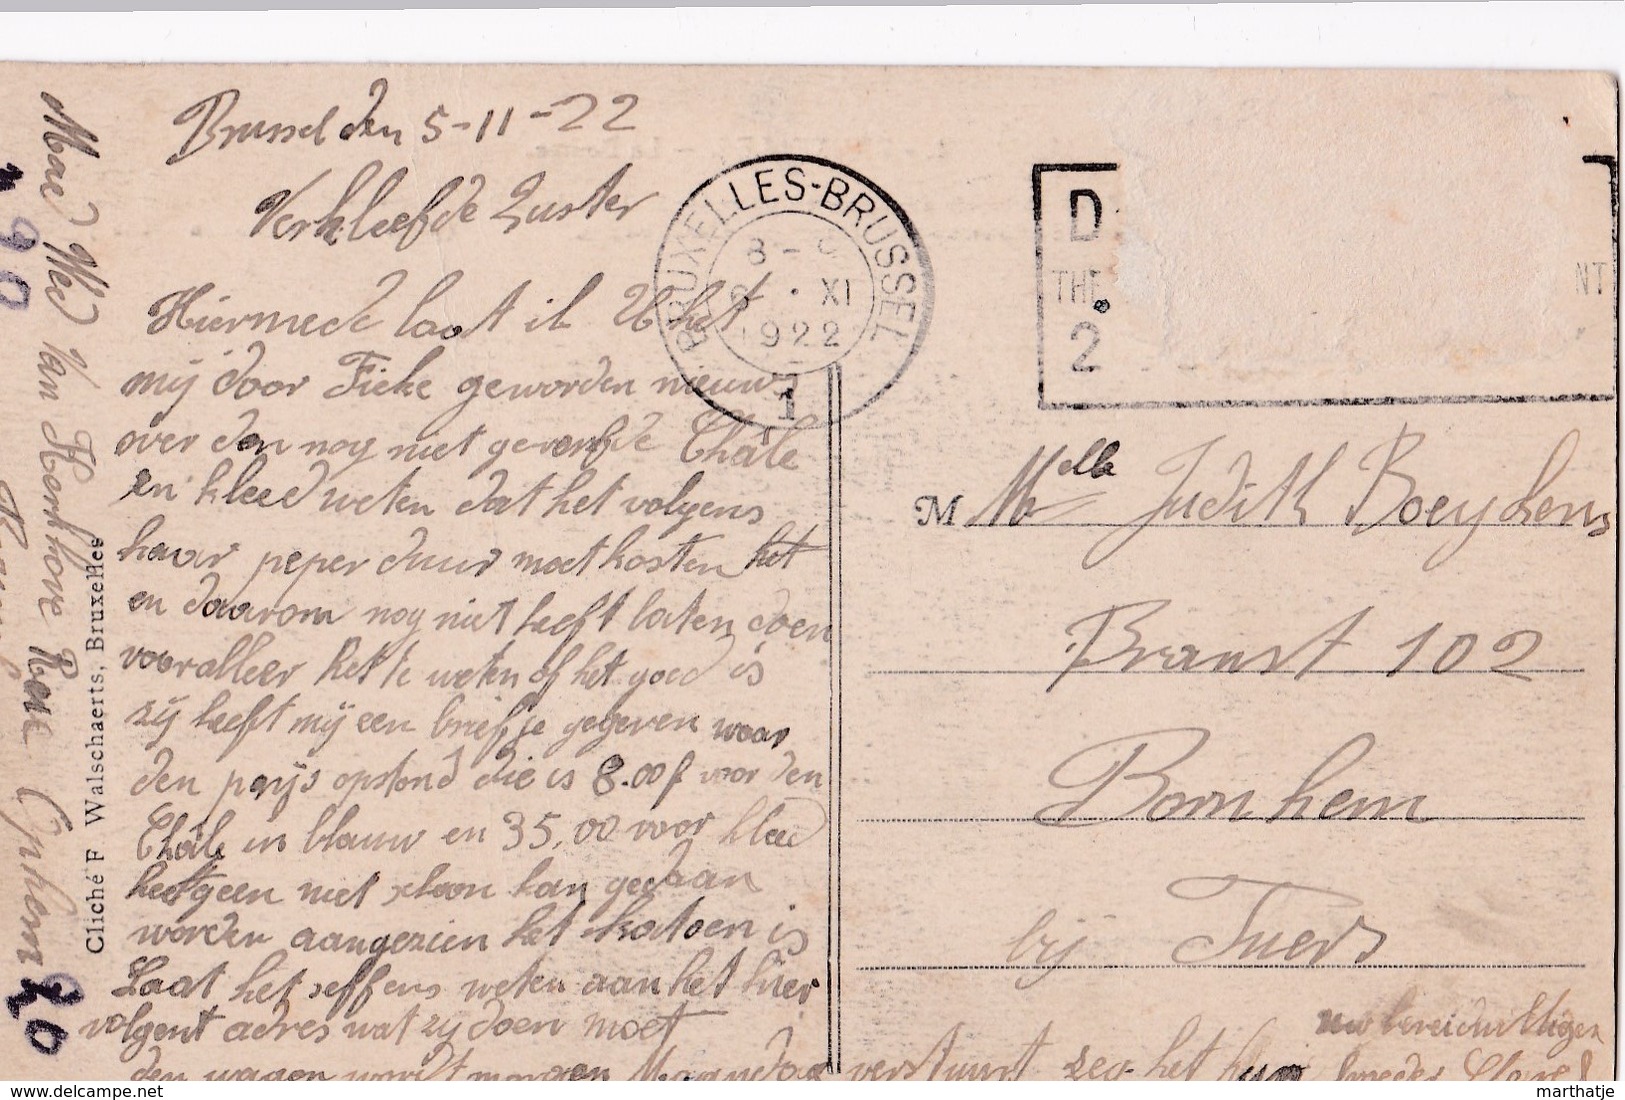 Brussel den 5-11-22
Verkleefde Zuster
Hiermede laat ik U het
mij door Fieke geworden nieuws
over den nog niet geverfde Châle
en kleed weten dat het volgens
haar peper duur moet kosten het
en daarom nog niet heeft laten doen
vooralleer het te weten of het goed is
zij heeft mij een briefje gegeven waar
den prijs opstond die is 8.00 f voor den
Châle in blauw en 35.00 voor kleed
hetgeen niet schoon kan gedaan
worden aangezien het katoen is
Laat het seffens weten aan het hier
volgent adres wat zij doen moet
den wagen wordt morgen Maandag verstuurt zeg het
uw bereidwilligen
broeder
Mad Wed Van Kerkhove Rue
Cliché F Walschaerts, Bruxelles
BRUXELLES-BRUSSEL
8 -
XI
1922
1
D
THE
NT
2
M Melle Judith Boeykens
Branst 102
Bornhem
bij Puers
delcampe.net
marthatje